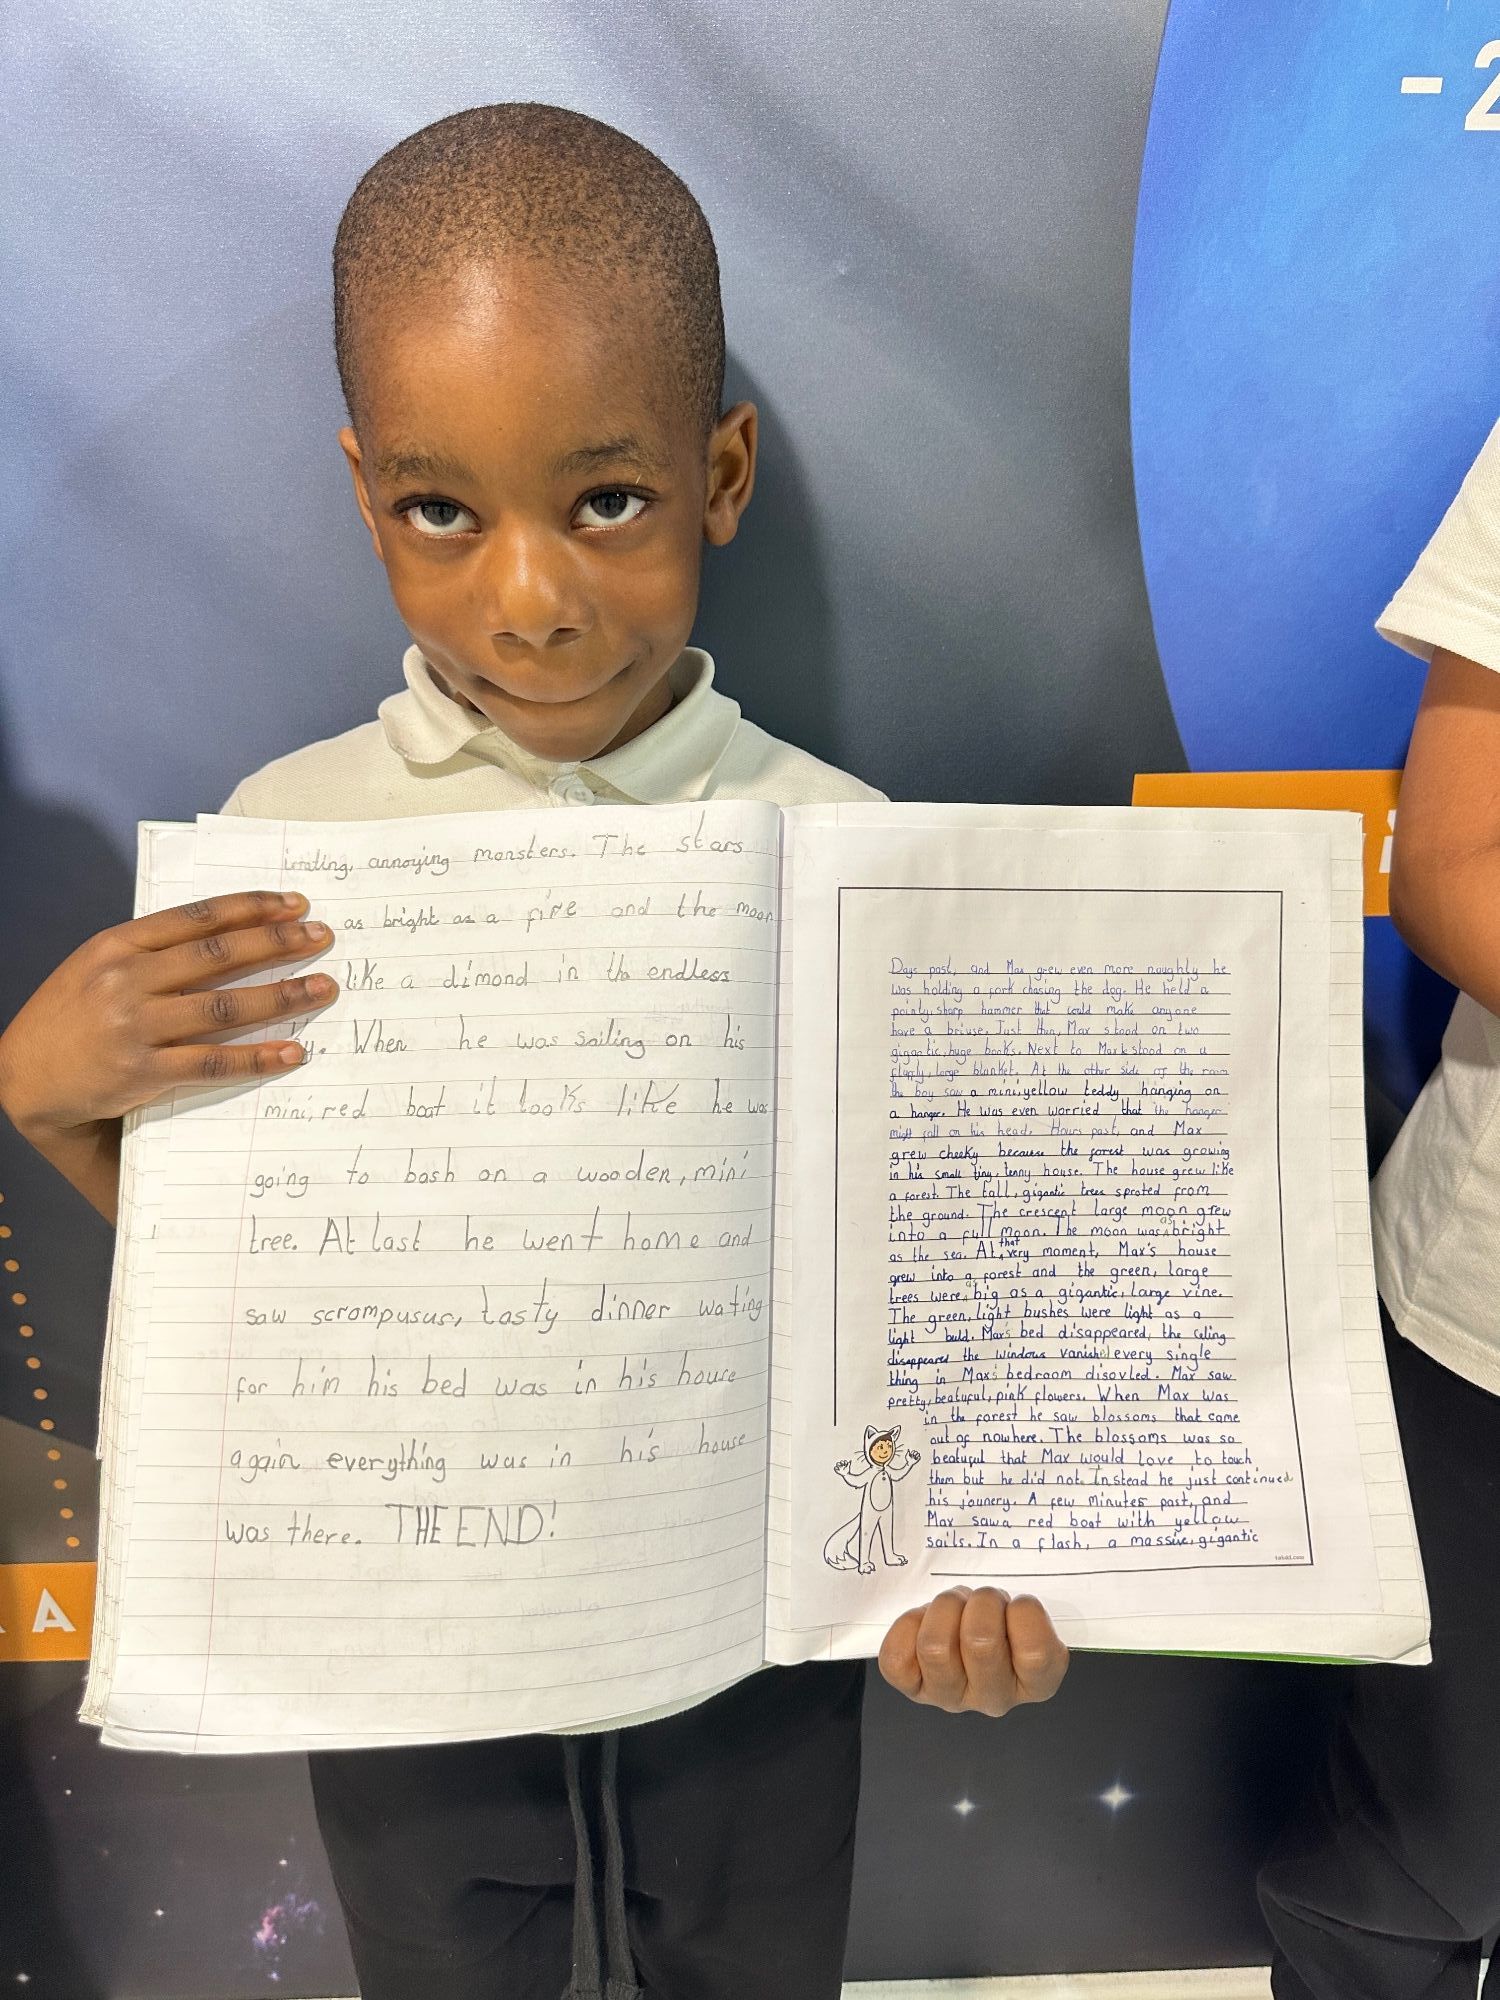 annoying monsters. The stars
as bright as a fire and the moon
like a dimond in the endless
When he was sailing on his
mini, red boat it looks like he was
going to bash on a wooden, mini
tree. At last he went home and
saw scrompusus, tasty dinner wating
for him his bed was in his house
again everything was in his house
was there. THE END!
Days past, and Max grew even more naughly he
was holding a fork chasing the dog. He held a
pointy, sharp hammer that could make anyone
have a briuse. Just then, Max stood on two
gigantic, huge books. Next to Max stood on a
fluffy, large blanket. At the other side of the room
the boy saw a mini, yellow teddy hanging on
a hanger. He was even worried that the hanger
might fall on his head. Hours past, and Max
grew cheeky because the forest was growing
in his small tiny, tenny house. The house grew like
a forest. The tall, gigantic trees sproted from
the ground. The crescent large moon grew
into a full moon. The moon was as bright
as the sea. At that very moment, Max's house
grew into a forest and the green, large
trees were as big as a gigantic, large vine.
The green, light bushes were light as a
light buld. Max's bed disappeared, the celing
disappeared the windows vanished every single
thing in Max's bedroom disovled. Max saw
pretty, beatuful, pink flowers. When Max was
in the forest he saw blossoms that came
out of nowhere. The blossoms was so
beatuful that Max would love to touch
them but he did not. Instead he just continued
his jounery. A few minutes past, and
Max saw a red boat with yellow
sails. In a flash, a massive, gigantic
- 2
A